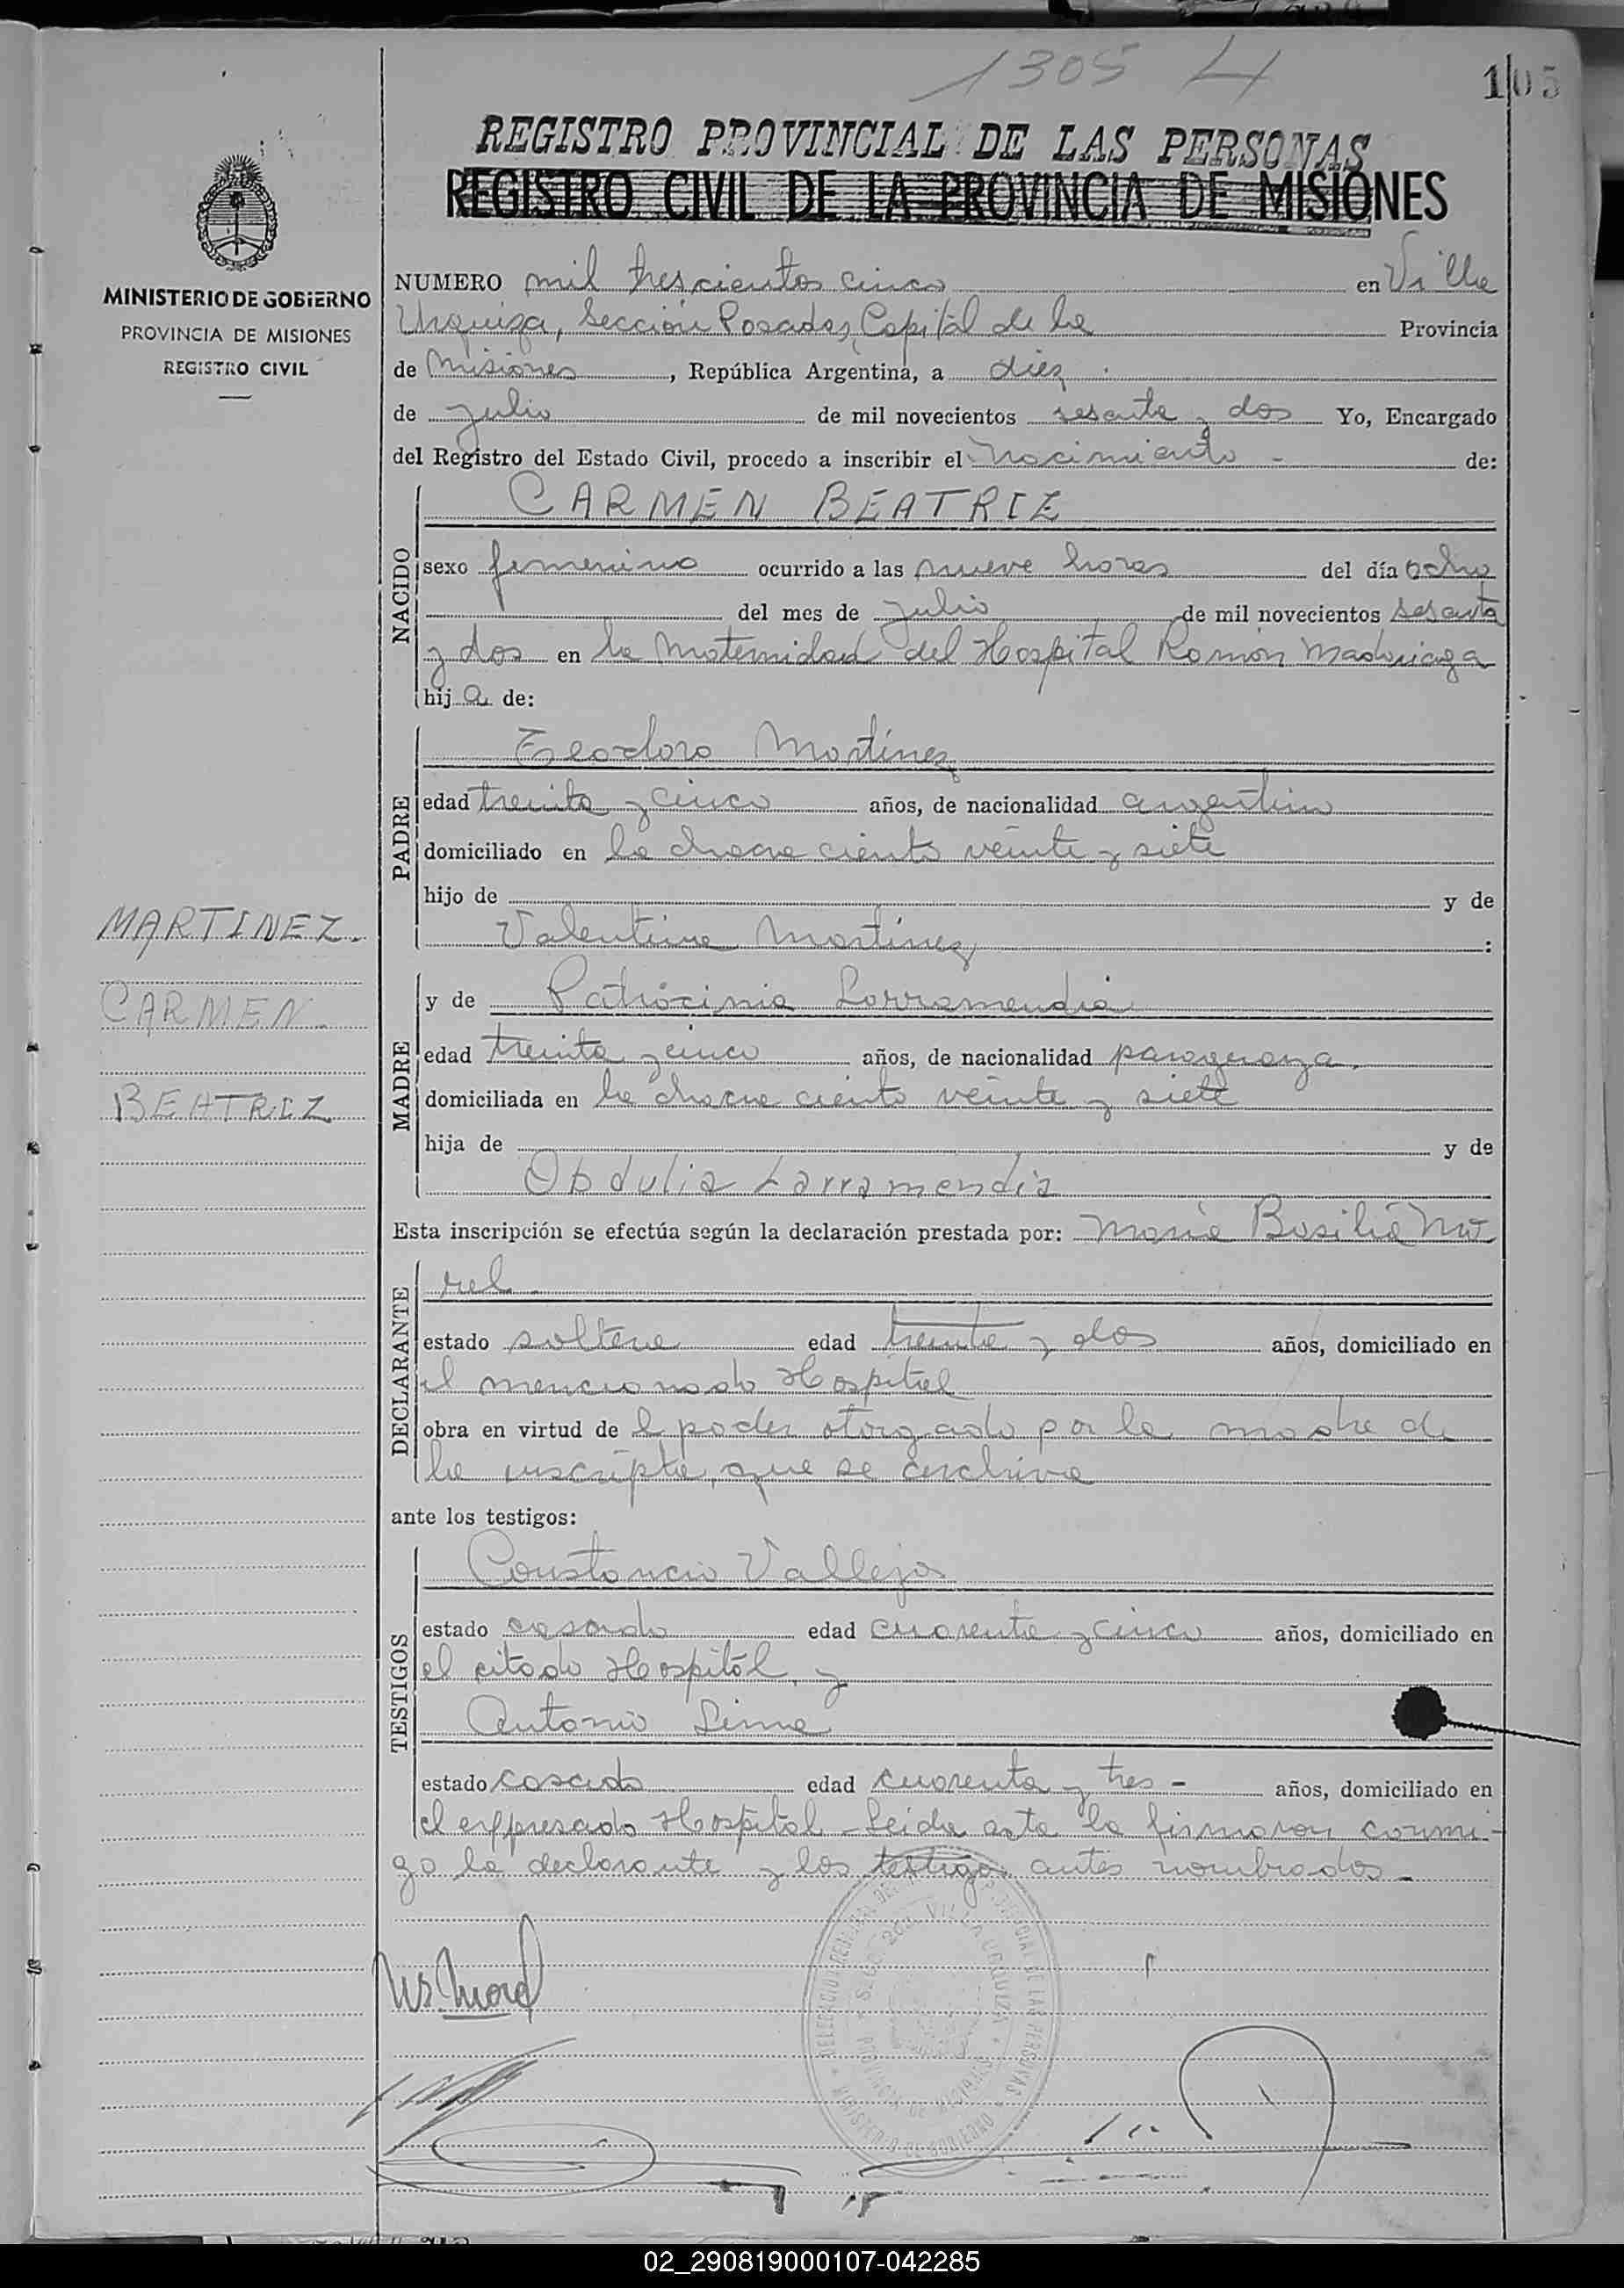 1305 L
105
REGISTRO PROVINCIAL DE LAS PERSONAS
REGISTRO CIVIL DE LA PROVINCIA DE MISIONES
MINISTERIO DE GOBIERNO
PROVINCIA DE MISIONES
REGISTRO CIVIL
NUMERO mil trescientos cinco en Villa
Urquiza, Sección Posadas, Capital de la Provincia
de Misiones, República Argentina, a diez
de julio de mil novecientos sesenta y dos Yo, Encargado
del Registro del Estado Civil, procedo a inscribir el nacimiento - de:
NACIDO
CARMEN BEATRIZ
sexo femenino ocurrido a las nueve horas del día ocho
del mes de julio de mil novecientos sesenta
y dos en la Maternidad del Hospital Ramón Madariaga
hij a de:
PADRE
Teodoro Martínez
edad treinta y cinco años, de nacionalidad argentino
domiciliado en la chacra ciento veinte y siete
hijo de y de
Valentina Martínez :
MARTINEZ.
CARMEN
BEATRIZ
MADRE
y de Patrocinia Larramendia
edad treinta y cinco años, de nacionalidad paraguaya.
domiciliada en la chacra ciento veinte y siete
hija de y de
Obdulia Larramendia
Esta inscripción se efectúa según la declaración prestada por: María Basilia Mo
DECLARANTE
rel
estado soltera edad treinta y dos años, domiciliado en
el mencionado Hospital
obra en virtud de l poder otorgado por la madre de
la inscripta, que se archiva
ante los testigos:
TESTIGOS
Constancio Vallejos
estado casado edad cuarenta y cinco años, domiciliado en
el citado Hospital, y
Antonio Lima
estado casado edad cuarenta y tres - años, domiciliado en
el expresado Hospital - Leida acta la firmaron conmi-
go la declarante y los testigos antes nombrados -
VILLA URQUIZA
PROVINCIA DE MISIONES
MINISTERIO DE GOBIERNO
02_290819000107-042285